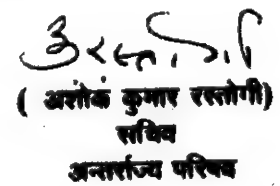 ( अशोक कुमार रस्तोगी)
सचिव
अन्तर्राज्य परिषद